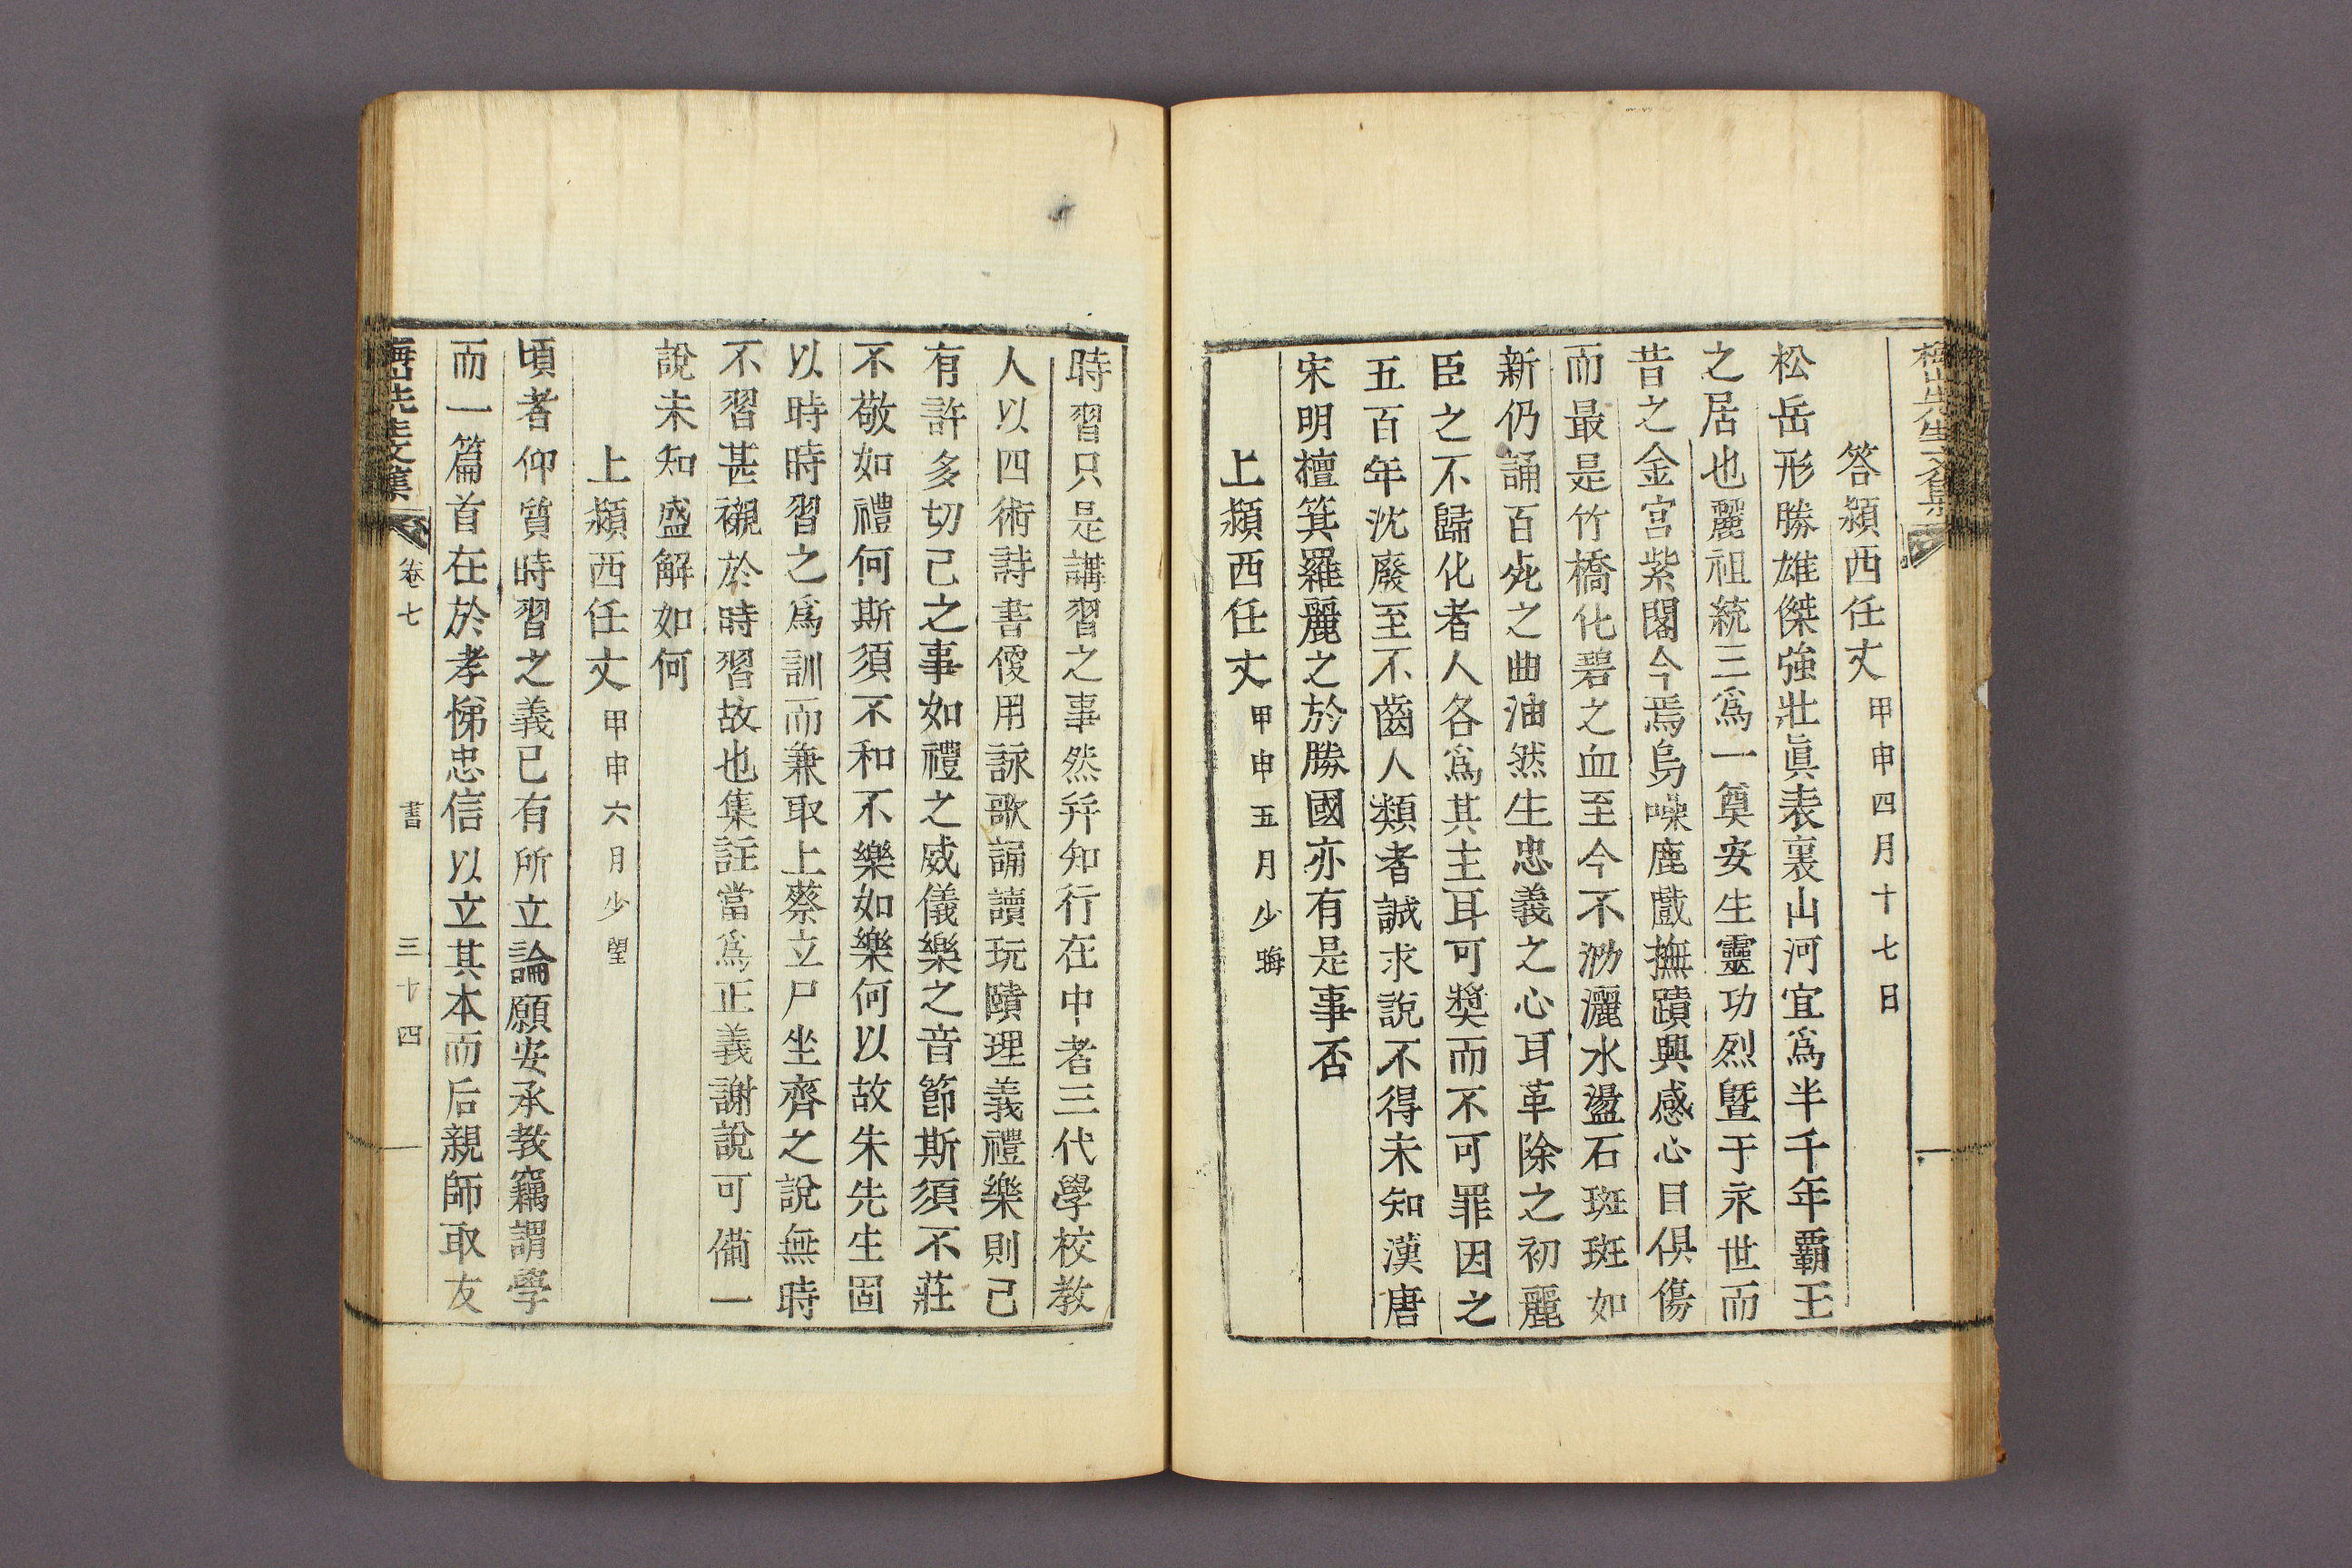 答潁西任丈 甲申四月十七日
松岳形勝雄傑強壯眞表裏山河宜爲半千年覇王
之居也麗祖統三爲一奠安生靈功烈曁于永世而
昔之金宮紫閣今焉烏噪鹿戱撫蹟興感心目俱傷
而最是竹橋化碧之血至今不泐灑水盪石斑斑如
新仍誦百死之曲油然生忠義之心耳革除之初麗
臣之不歸化者人各爲其主耳可奬而不可罪因之
五百年沈廢至不齒人類者誠求說不得未知漢唐
宋明檀箕羅麗之於勝國亦有是事否
上潁西任丈 甲申五月少晦
時習只是講習之事然幷知行在中者三代學校教
人以四術詩書傻用詠歌誦讀玩賾理義禮樂則己
有許多切己之事如禮之威儀樂之音節斯須不莊
不敬如禮何斯須不和不樂如樂何以故朱先生固
以時時習之爲訓而兼取上蔡立尸坐齊之說無時
不習甚襯於時習故也集註當爲正義謝說可備一
說未知盛解如何
上潁西任丈 甲申六月少望
頃者仰質時習之義已有所立論願安承教竊謂學
而一篇首在於孝悌忠信以立其本而后親師取友
梅山先生文集 卷七 書 三十四